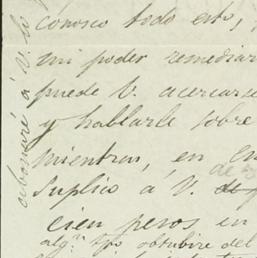 conozco todo esto,
mi poder remediar
puede V. acercarse
y hablarle sobre
mientras, en
Suplico á V.
cien pesos en
del
abonaré á V. lo